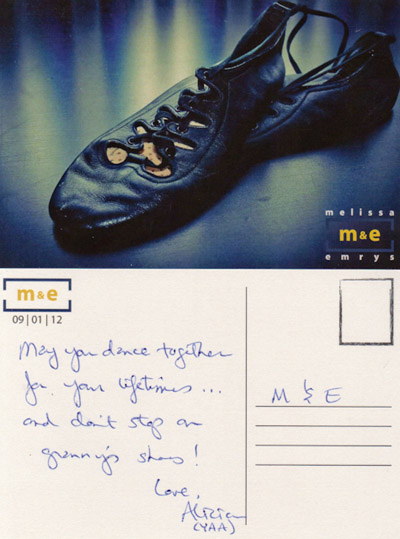 melissa
m&e
emrys
m&e
09|01|12
May you dance together
for your lifetimes...
and don't step on
granny's shoes!
M & E
Love,
Alizia
(YAA)